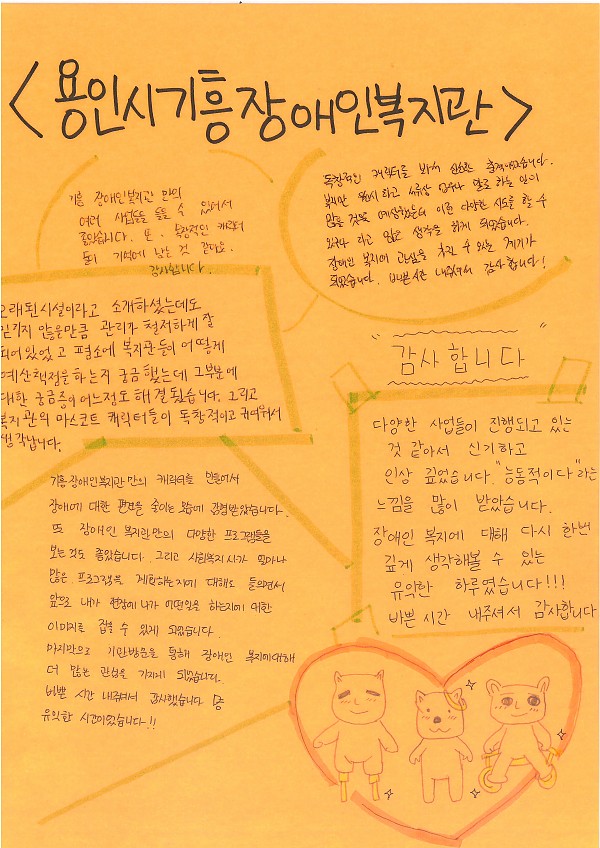 <용인시기흥장애인복지관>
기흥 장애인복지관 만의
여러 사업들을 들을 수 있어서
좋았습니다. 또, 독창적인 캐릭터
들이 기억에 남는 것 같아요.
감사합니다.
독창적인 캐릭터를 봐서 신선한 충격이었습니다.
복지관 역시 하고 서류상 업무나 말로 하는 일이
많을 것으로 예상했는데 이런 다양한 시도를 할 수
있구나 라고 많은 생각을 하게 되었습니다.
장애인 복지에 관심을 가질 수 있는 계기가
되었습니다. 바쁜시간 내주셔서 감사합니다!
오래된시설이라고 소개하셨는데도
믿기지 않을만큼 관리가 철저하게 잘
되어있었고 평소에 복지관들이 어떻게
예산책정을 하는지 궁금했는데 그부분에
대한 궁금증이 어느정도 해결됐습니다. 그리고
복지관의 마스코트 캐릭터들이 독창적이고 귀여워서
생각납니다.
" 감사합니다 "
다양한 사업들이 진행되고 있는
것 같아서 신기하고
인상 깊었습니다. "능동적이다"라는
느낌을 많이 받았습니다.
장애인 복지에 대해 다시 한번
깊게 생각해볼 수 있는
유익한 하루였습니다!!!
바쁜 시간 내주셔서 감사합니다
기흥장애인복지관 만의 캐릭터를 만들어서
장애에 대한 편견을 줄이는 모습에 감명받았습니다.
또 장애인 복지관만의 다양한 프로그램들을
보는것도 좋았습니다. 그리고 사회복지사가 얼마나
많은 프로그램을 계획하는지에 대해도 들으면서
앞으로 내가 현장에 나가 어떤일을 하는지에 대한
이미지를 잡을 수 있게 되었습니다.
마지막으로 기관방문을 통해 장애인 복지에대해
더 많은 관심을 가지게 되었습니다.
바쁜 시간 내주셔서 감사했습니다
유익한 시간이었습니다!!